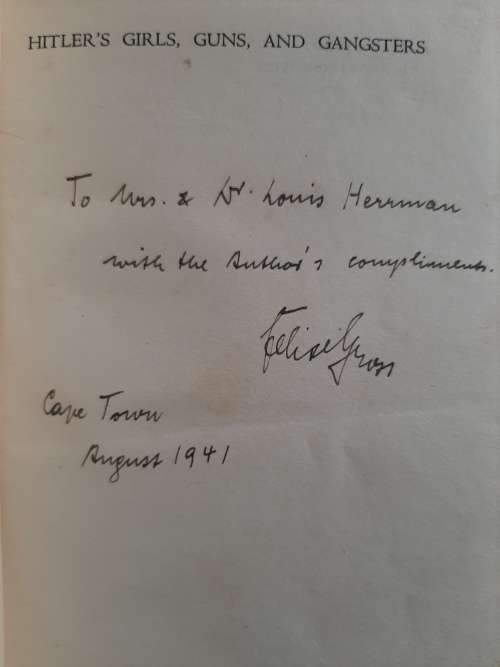 HITLER'S GIRLS, GUNS, AND GANGSTERS
To Mrs. & Dr. Louis Herrman
with the Author's compliments.
Felix Gross
Cape Town
August 1941